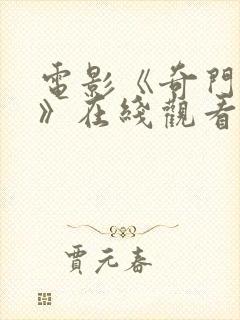 電影《奇門
》在綫觀看
賈元春